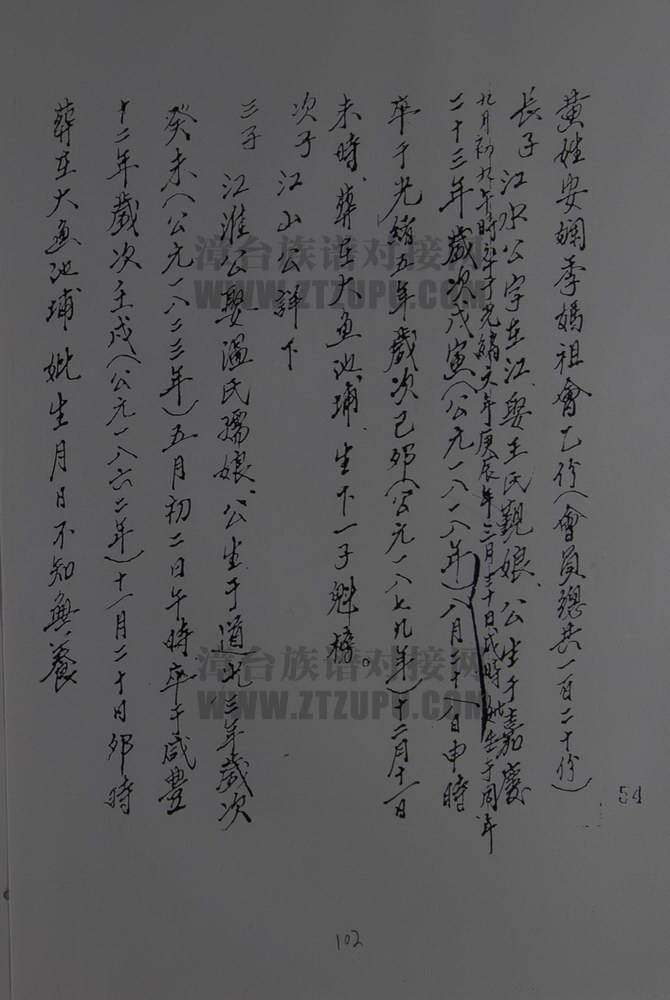 黃姓安嫻季媽祖會乙份(會員總共一百二十份)
長子 江水公字在江.娶王氏觀娘.公生于嘉慶
二十三年歲次戊寅(公元一八一八年)八月二十八日申時
九月初九午時卒于光緒六年庚辰年三月三十日戌時妣生于同年
卒于光緒五年歲次己卯(公元一八七九年)十二月十一日
未時.葬在大魚池埔.生下一子魁榜。
次子 江山公詳下
三子 江淮公娶溫氏孺娘.公生于道光三年歲次
癸未(公元一八二三年)五月初二日午時.卒于咸豐
十二年歲次壬戌(公元一八六二年)十一月二十日卯時
葬在大魚池埔 妣生月日不知無養
漳台族谱对接网
WWW.ZTZUPU.COM
漳台族谱对接网
WWW.ZTZUPU.COM
54
102